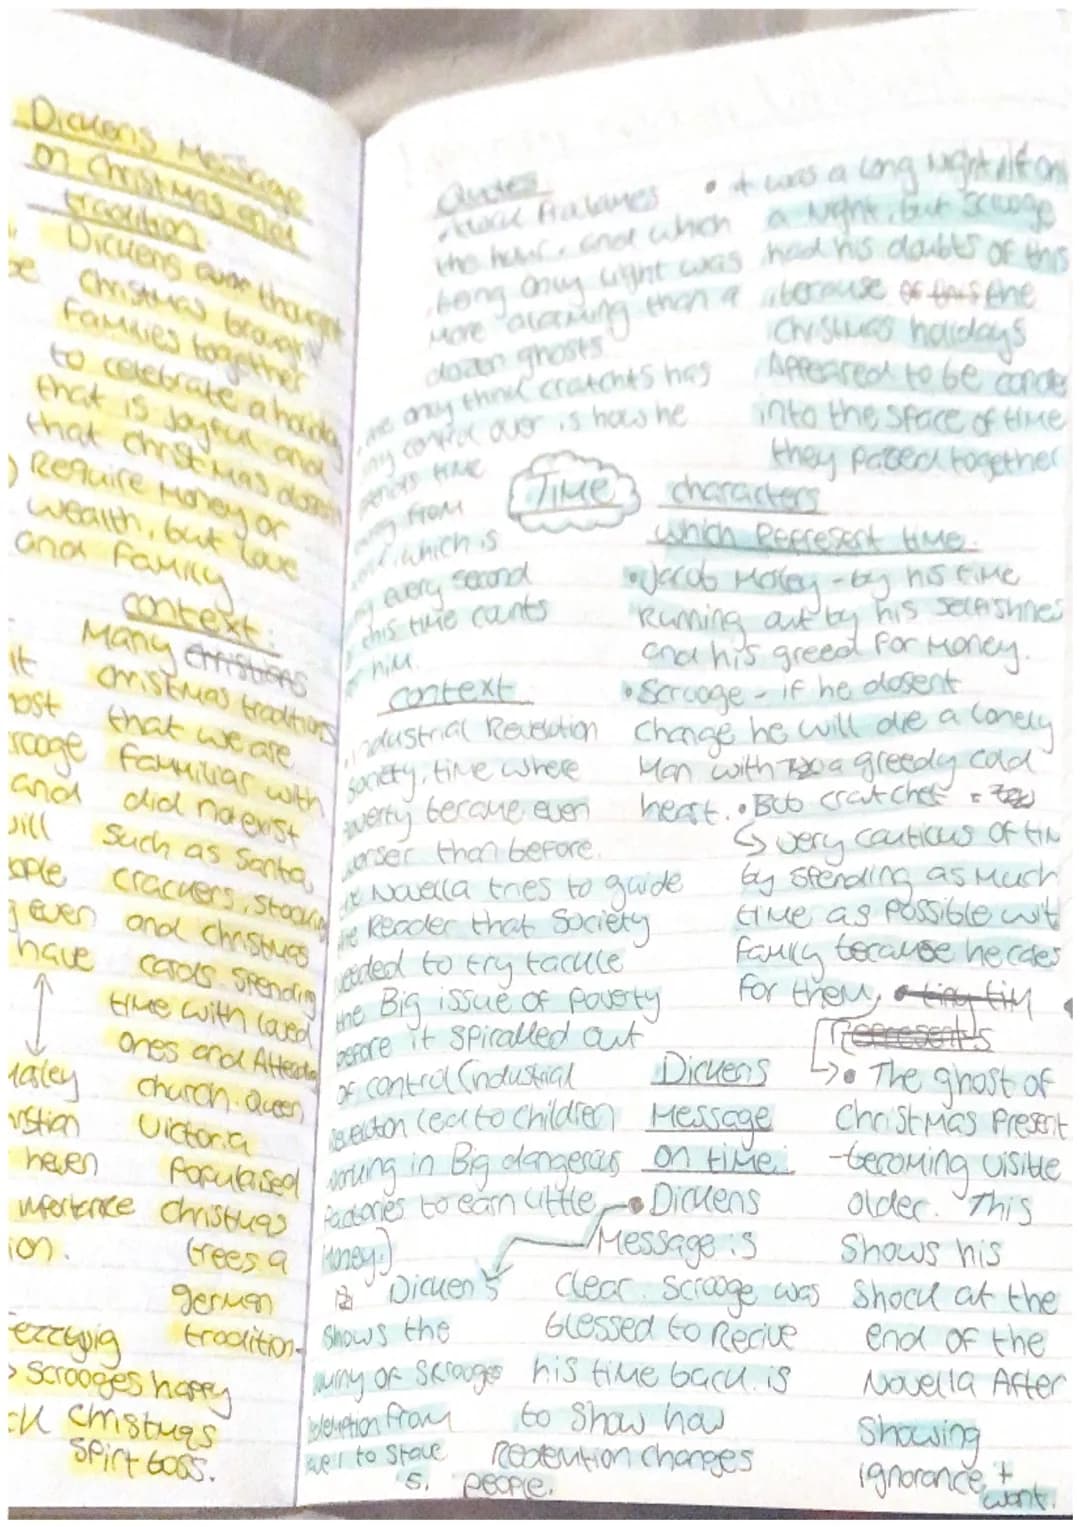 Dickens Message
on Christmas and
tradition.
Dickens thought
Christmas brought
families together
to celebrate a holiday
that is Joyful and
that christmas dosent
Require Money or
wealth, but love
and family
context:
Many christmas
christmas traditions
that we are
familiar with
did no exist
such as Santa,
crackers, stocking
and christmas
carols. spending
time with loved
ones and Attend
church. Queen
Victoria
Popularised
christmas
trees a
german
tradition.
it
and
even
have
Marley
heven
ion.
ezzywig
scrooges happy
christmas
spirt boss.
Quotes
the hour, and which
being only light was
more alarming than a
dozen ghosts
one only thind cratchits has
any control over is how he
time
from
which is
every second
this time counts
him.
context
industrial Revolution
Society, time where
poverty became even
worser than before.
Novella tries to guide
the Reader that Society
needed to try tackle
the Big issue of poverty
before it spiralled out
of control (industrial
Revolution led to children
working in Big dangerous
factories to earn little
money.)
Dickens
shows the
of Scrooges
from
to stave
5.
• it was a long Night if on
a Night, but Scrooge
had his doubts of this
because of this the
christmas holidays
Appeared to be conde
into the space of time
they passed together
TIME
characters
which Represent time.
• Jacob Marley - by his time
Running out by his selfishnes
and his greed for Money.
• Scrooge - if he dosent
change he will die a lonely
Man with a greedy cold
heart. • Bob cratchet =
↳ very cautious of tim
by spending as much
time as possible wit
family because he cares
for them, • tiny tim
Represents
• The ghost of
Christmas Present
-becoming visible
older. This
shows his
shock at the
end of the
Novella After
showing
ignorance +
want.
Dickens
Message
on time.
• Dickens
Message is
clear. Scrooge was
blessed to Recive
his time back is
to show how
Redemtion changes
people.